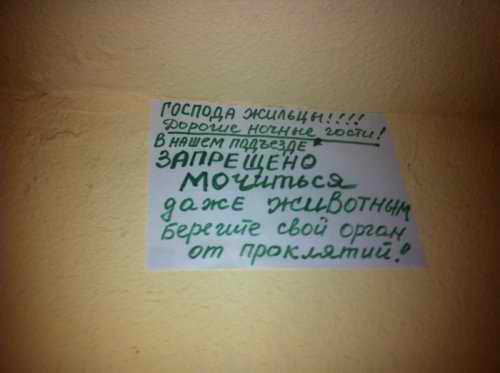 ГОСПОДА ЖИЛЬЦЫ!!!!
Дорогие ночные гости!
В НАШЕМ ПОДЪЕЗДЕ
ЗАПРЕЩЕНО
МОЧИТЬСЯ
даже ЖИВОТНЫМ
Берегите свой орган
от проклятий!!